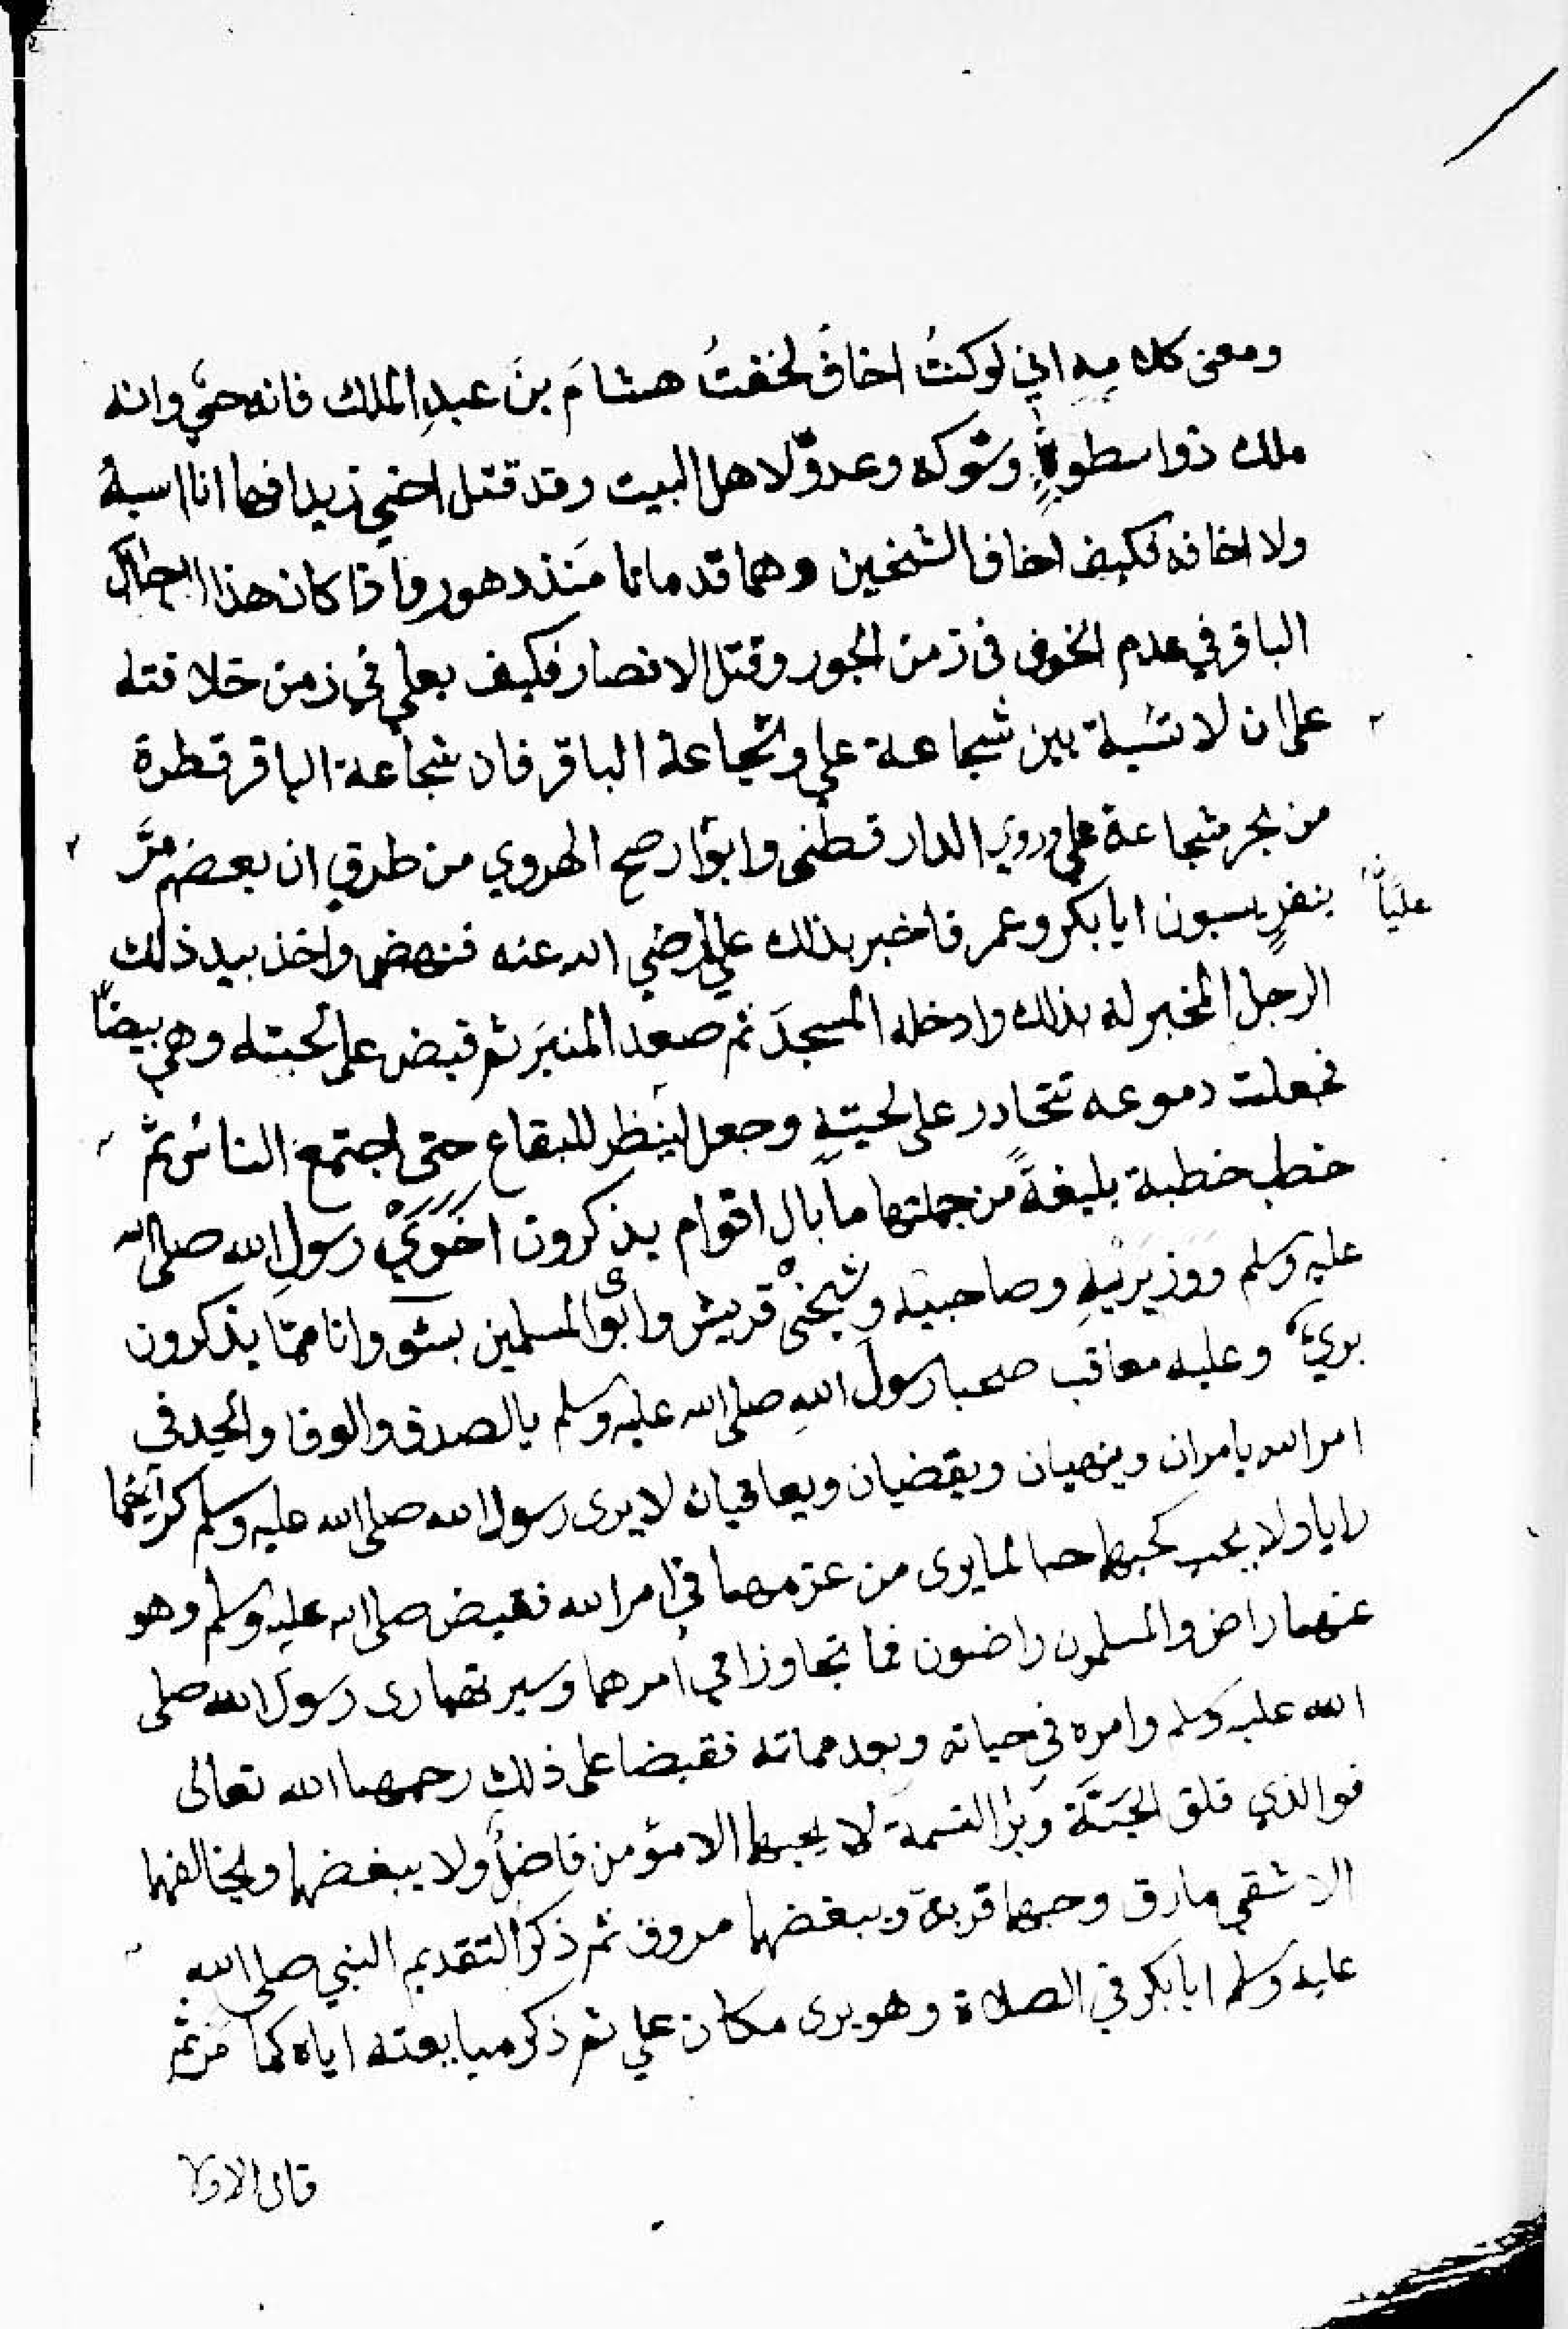 ومعنى كلامه اني لو كنتُ اخافُ لخفتُ هشامَ بنَ عبدِ الملك فانه حيٌ وانه
ملك ذوا سطوةٍ وشوكه وعدوٌ لاهل البيت وقد قتل اخي زيدا فها انا اسبهُ
ولا اخافه فكيف اخاف الشيخين وهما قد ماتا مَنذ دهور فاذا كان هذا حال
الباقر في عدم الخوف في زمن الجور وقتل الانصار فكيف بعلي في زمن خلافته
على ان لا نسبة بين شجاعة علي وشجاعة الباقر فان شجاعة الباقر قطرة
من بحر شجاعة علي وروى الدارقطنى وابوا ذر الهروي من طرق ان بعضهم مرَّ
بنفرٍ يسبون ابا بكر وعمر فاخبر بذلك علي رضي الله عنه فنهض واخذ بيد ذلك
علياً
الرجل المخبر له بذلك وادخله المسجدَ ثم صعِد المنبَر ثم قبض على لحيته وهي بيضا
فجعلت دموعه تتحادر على لحيتِهِ وجعل ينظر للبقاع حتى اجتمع الناسُ ثم
خطب خطبة بليغةً من جملتها ما بال اقوام يذكرون اخَوَيْ رسولِ الله صلى الله
عليه وسلم ووَزيرَيْهِ وصاحبيه وشيخىْ قريش وابوى المسلمين بسوء وانا مما يذكرون
بريٌ وعليه معاقب صحبا رسولَ اللهِ صلى الله عليه وسلم بالصدق والوفا والجد في
امر الله يامران وينهيان ويقضيان ويعاقبان لا يرى رسول الله صلى الله عليه وسلم كرايهما
رايا ولا يحب كحبهما حبا لما يرى من عزمهما في امر الله فقبض صلى الله عليه وسلم وهو
عنهما راض والمسلمون راضون فما تجاوزا في امرهما وسيرتهما راى رسول الله صلى
الله عليه وسلم وامره في حياته وبعد مماته فقبضا على ذلك رحمهما الله تعالى
فو الذي فلق الحَبَّة وبَرا النسمة لا يحبهما الا مؤمن فاضلٌ ولا يبغضهما ويخالفهما
الا شقي مارق وحبهما قربة وبغضهما مروق ثم ذكر التقديم النبي صلى الله
عليه وسلم ابا بكر في الصلاة وهو يرى مكان علي ثم ذكر مبايعته اياه كما مر ثم
قال الاولا